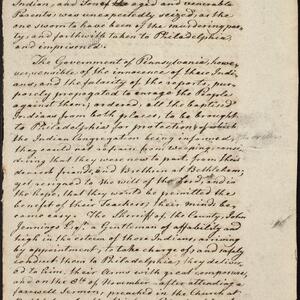 Indian, and Son of the aged and venerable
Parents was unexpectedly seized, as the
one sworn to have been of the murdering par-
ty, and forthwith taken to Philadelphia
and imprisoned.
The Government of Pennsylvania, how-
ever, sensible of the innocence of these Indi-
ans, and the falsity of the reports, pur-
posely propagated to enrage the People
against them; ordered, all the baptized
Indians from both places, to be brought
to Philadelphia for protection; of which
the Indian Congregation being informed,
they could not refrain from weeping, consi-
dering that they were now to part from their
dear friends, and Brethren at Bethlehem;
yet resigned to the will of the Lord, and in
the hope, that they would be permitted the
benefit of their Teachers; their mind be-
came easy. The Sheriff of the County, John
Jennings Esqr. a Gentleman of affability and
high in esteem of those Indians, arriving
by appointment, to take charge of, and safely
conduct them to Philadelphia; they deli-
vered to him, their Arms with great composure,
and on the 8th. of November after attending a
farewell Sermon, preached in the Church at